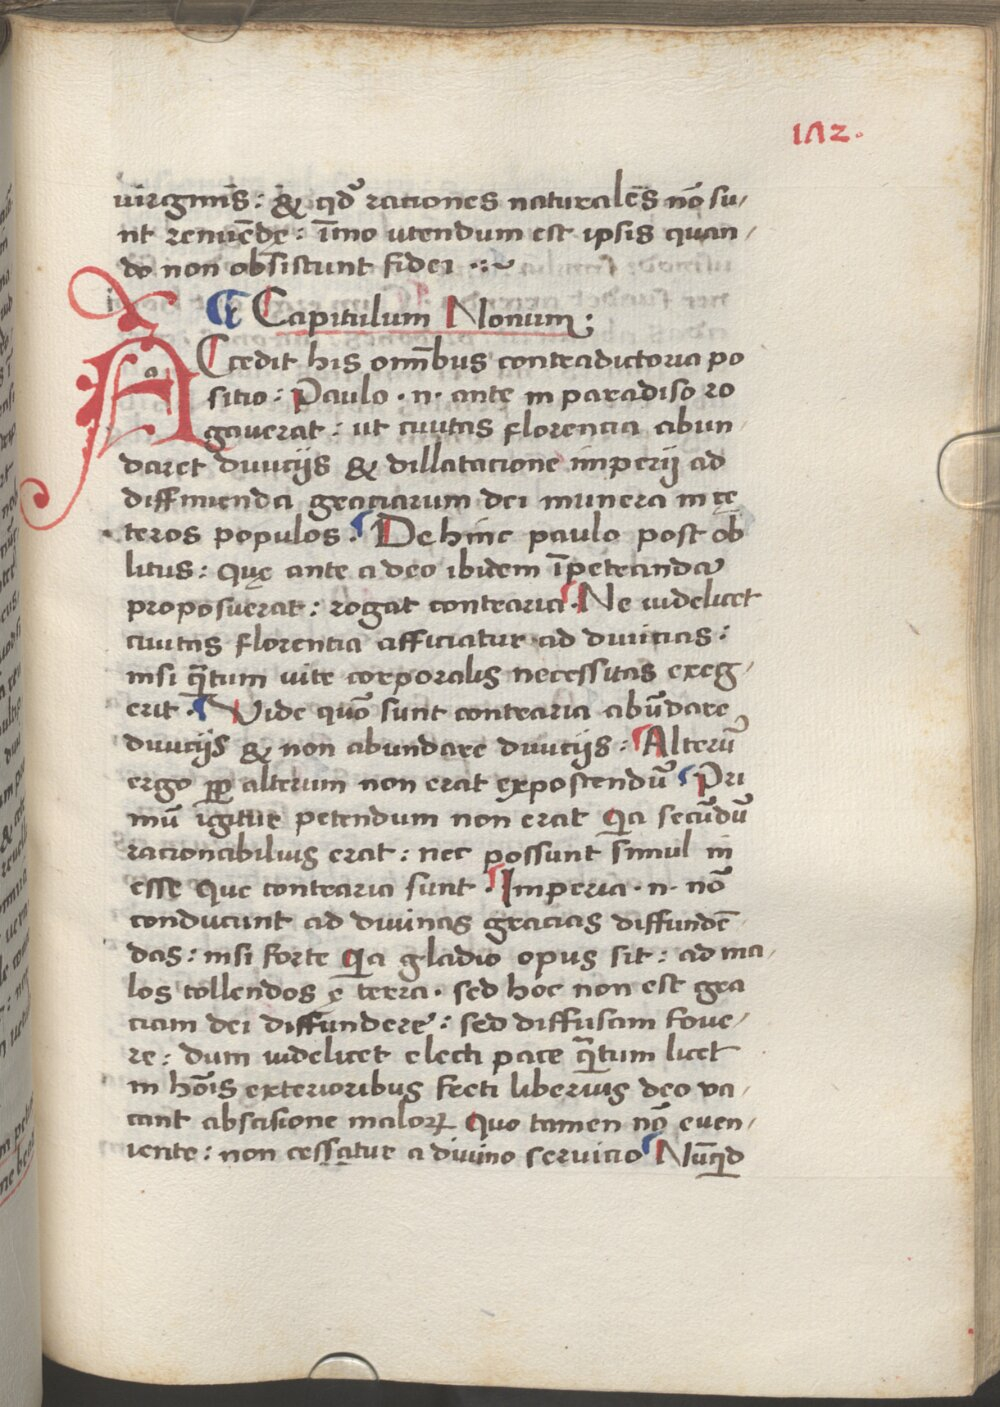 142.
uirginis: & qđ rationes naturales nō su/
nt renuēde: īmo utendum est ipsis quan/
do non obsistunt fidei
Capitulum Nonum:
Accedit his omībus contradictoria po
sitio: Paulo · n · ante in paradiso ro
gauerat: ut ciuitas florencia abun/
daret diuicijs & dillatacione imperij ad
diffiniendā graciarum dei munera in cę
teros populos. Dehinc paulo post ob
litus: quę ante a deo ibidem īpetranda
proposuerat: rogat contraria. Ne uidelicet
ciuitas florentia afficiatur ad diuicias:
nisi q̄tum uite corporalis necessitas exeg/
erit. Vide quō sunt contraria abūdare
diuicijs & non abundare diuicijs: Alterū
ergo ꝓꝑ alterum non erat expostendū Pri
mū igitur petendum non erat Qia secūdū
racionabilius erat: nec possunt simul in
esse que contraria sunt. Imperia · n · nō
conducunt ad diuinas gracias diffundē
das: nisi forte Qia gladio opus sit: ad ma/
los tollendos ę terra. sed hoc non est gra
ciam dei diffundere: sed diffusam foue/
re: dum uidelicet electi pace q̄tum licet
in hōis exterioribus freti liberius deo va/
cant abscisione maloꝝ Quo tamen nō euen/
iente: non cessatur a diuino seruicio Nūqid